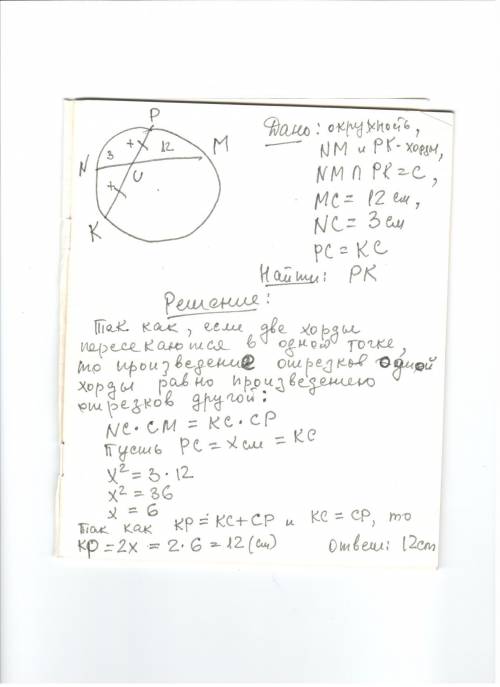 P
3
x
12
M
N
C
x
K
Дано: окружность,
NM и PK - хорды,
NM ∩ PK = C,
MC = 12 см,
NC = 3 см
PC = KC
Найти: PK
Решение:
Так как, если две хорды
пересекаются в одной точке,
то произведение отрезков одной
хорды равно произведению
отрезков другой:
NC · CM = KC · CP
Пусть PC = x см = KC
x² = 3 · 12
x² = 36
x = 6
Так как KP = KC + CP и KC = CP, то
KP = 2x = 2 · 6 = 12 (см) Ответ: 12 см